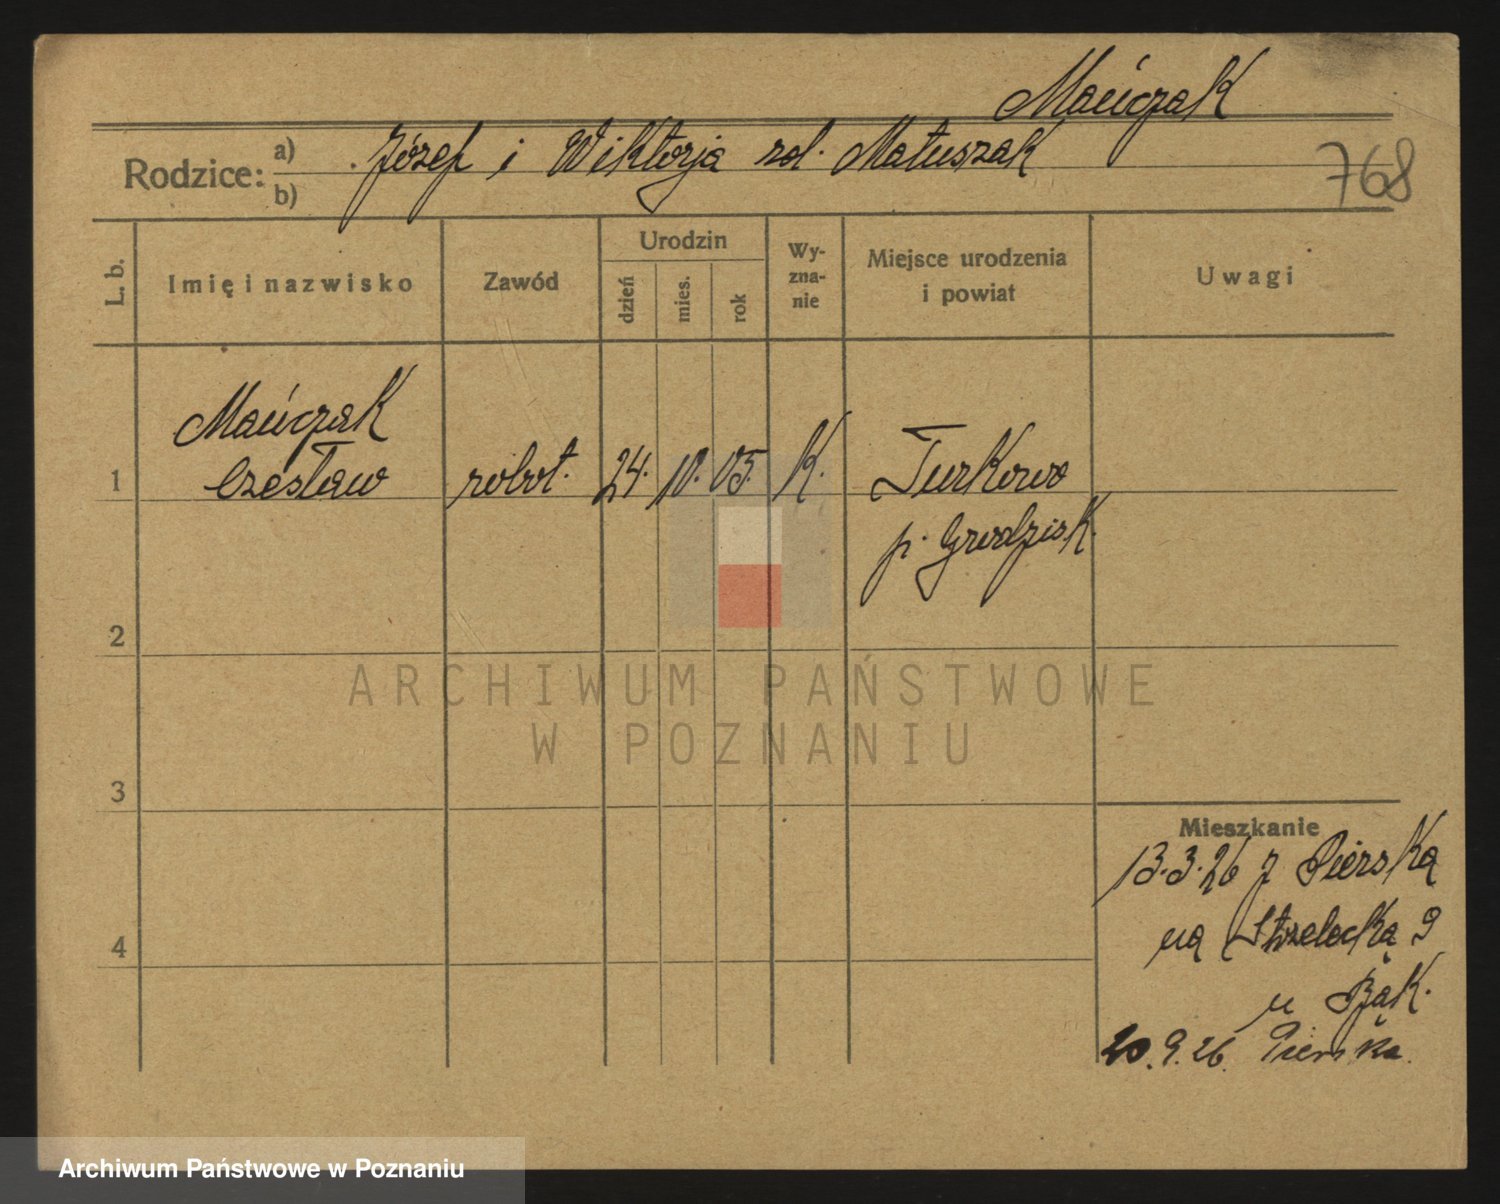 Mańczak
Rodzice: a) Józef i Wiktorja rol. Matuszak
b)
768
L. b.
Imię i nazwisko
Zawód
Urodzin
dzień
mies.
rok
Wy-
zna-
nie
Miejsce urodzenia
i powiat
Uwagi
Mańczak
1 Czesław robot. 24. 10. 05. K. Turkowo
p. Grodzisk.
2
ARCHIWUM PAŃSTWOWE
W POZNANIU
3
Mieszkanie
13.3.26 z Pierska
na Strzelecką 9
4
u Bąk.
20.9.26. Pierska.
Archiwum Państwowe w Poznaniu